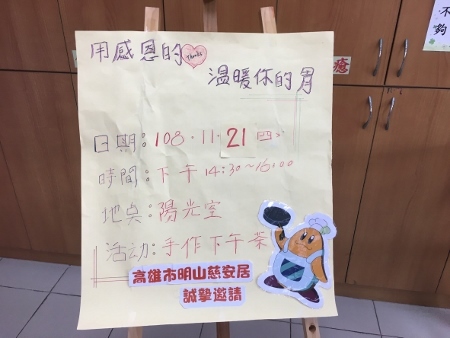 用感恩的
Thanks
溫暖你的胃
日期：108.11.21 四
時間：下午14:30~16:00
地点：陽光室
活动：手作下午茶
高雄市明山慈安居
誠摯邀請
不
夠
癒